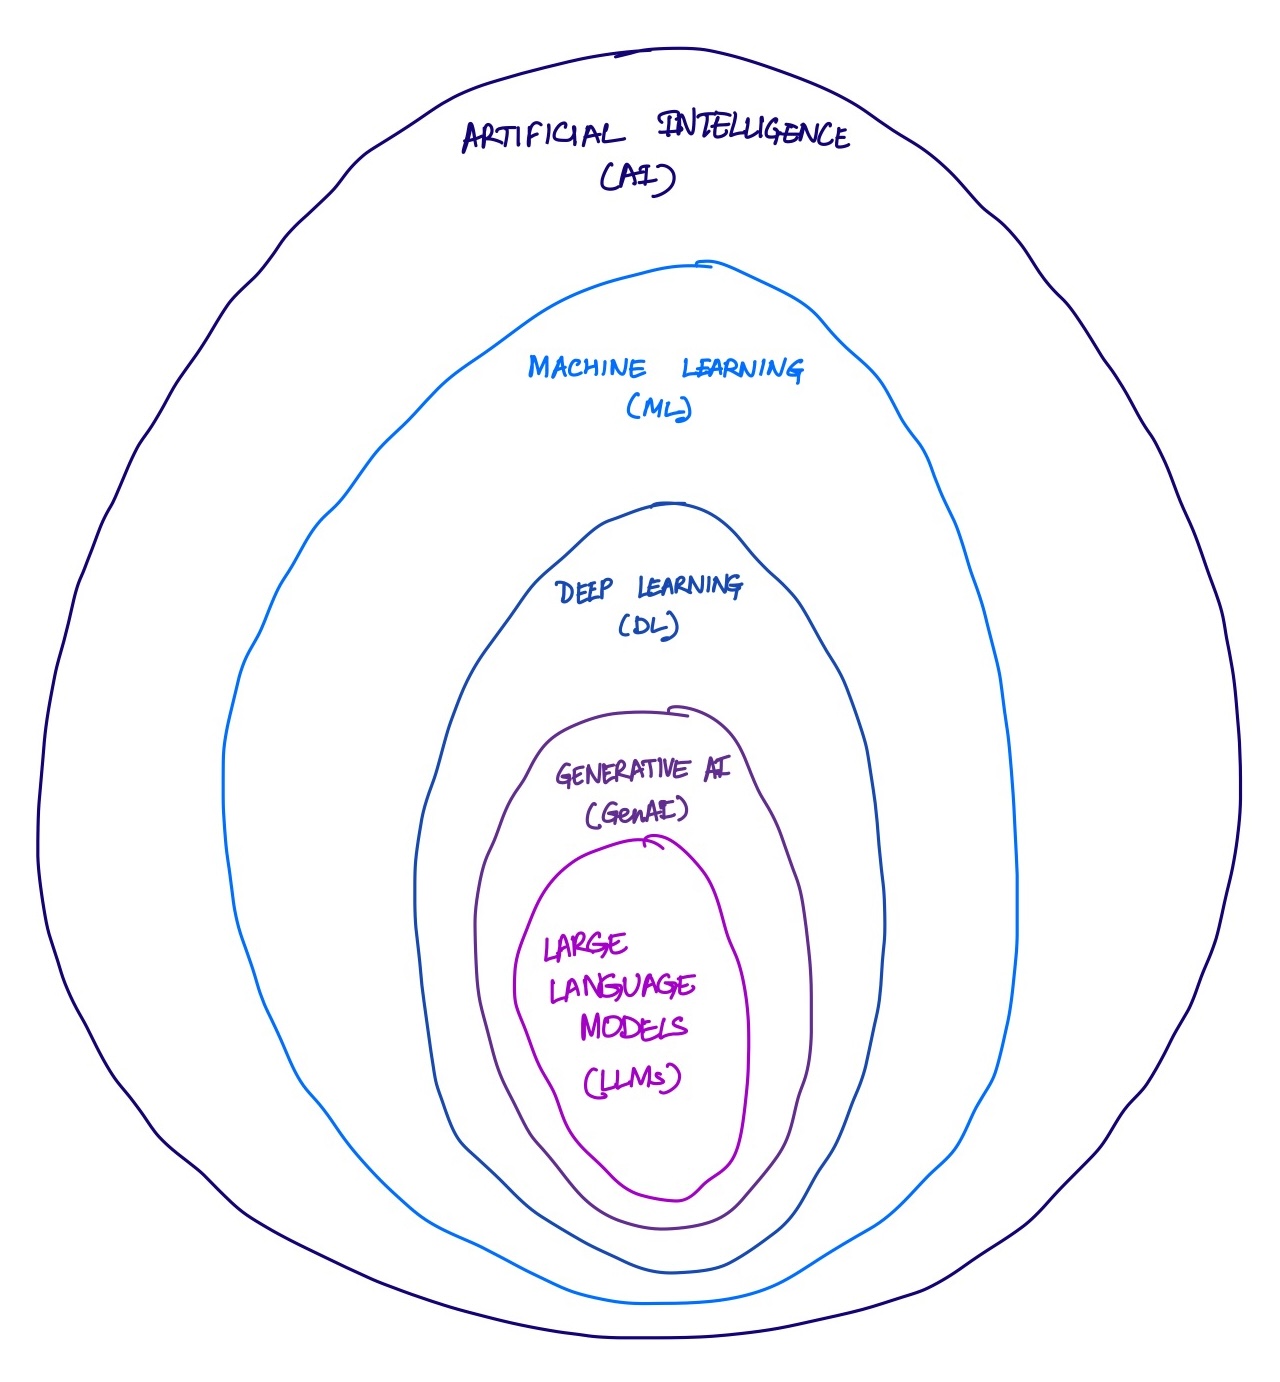 ARTIFICIAL INTELLIGENCE
(AI)
MACHINE LEARNING
(ML)
DEEP LEARNING
(DL)
GENERATIVE AI
(GenAI)
LARGE
LANGUAGE
MODELS
(LLMs)